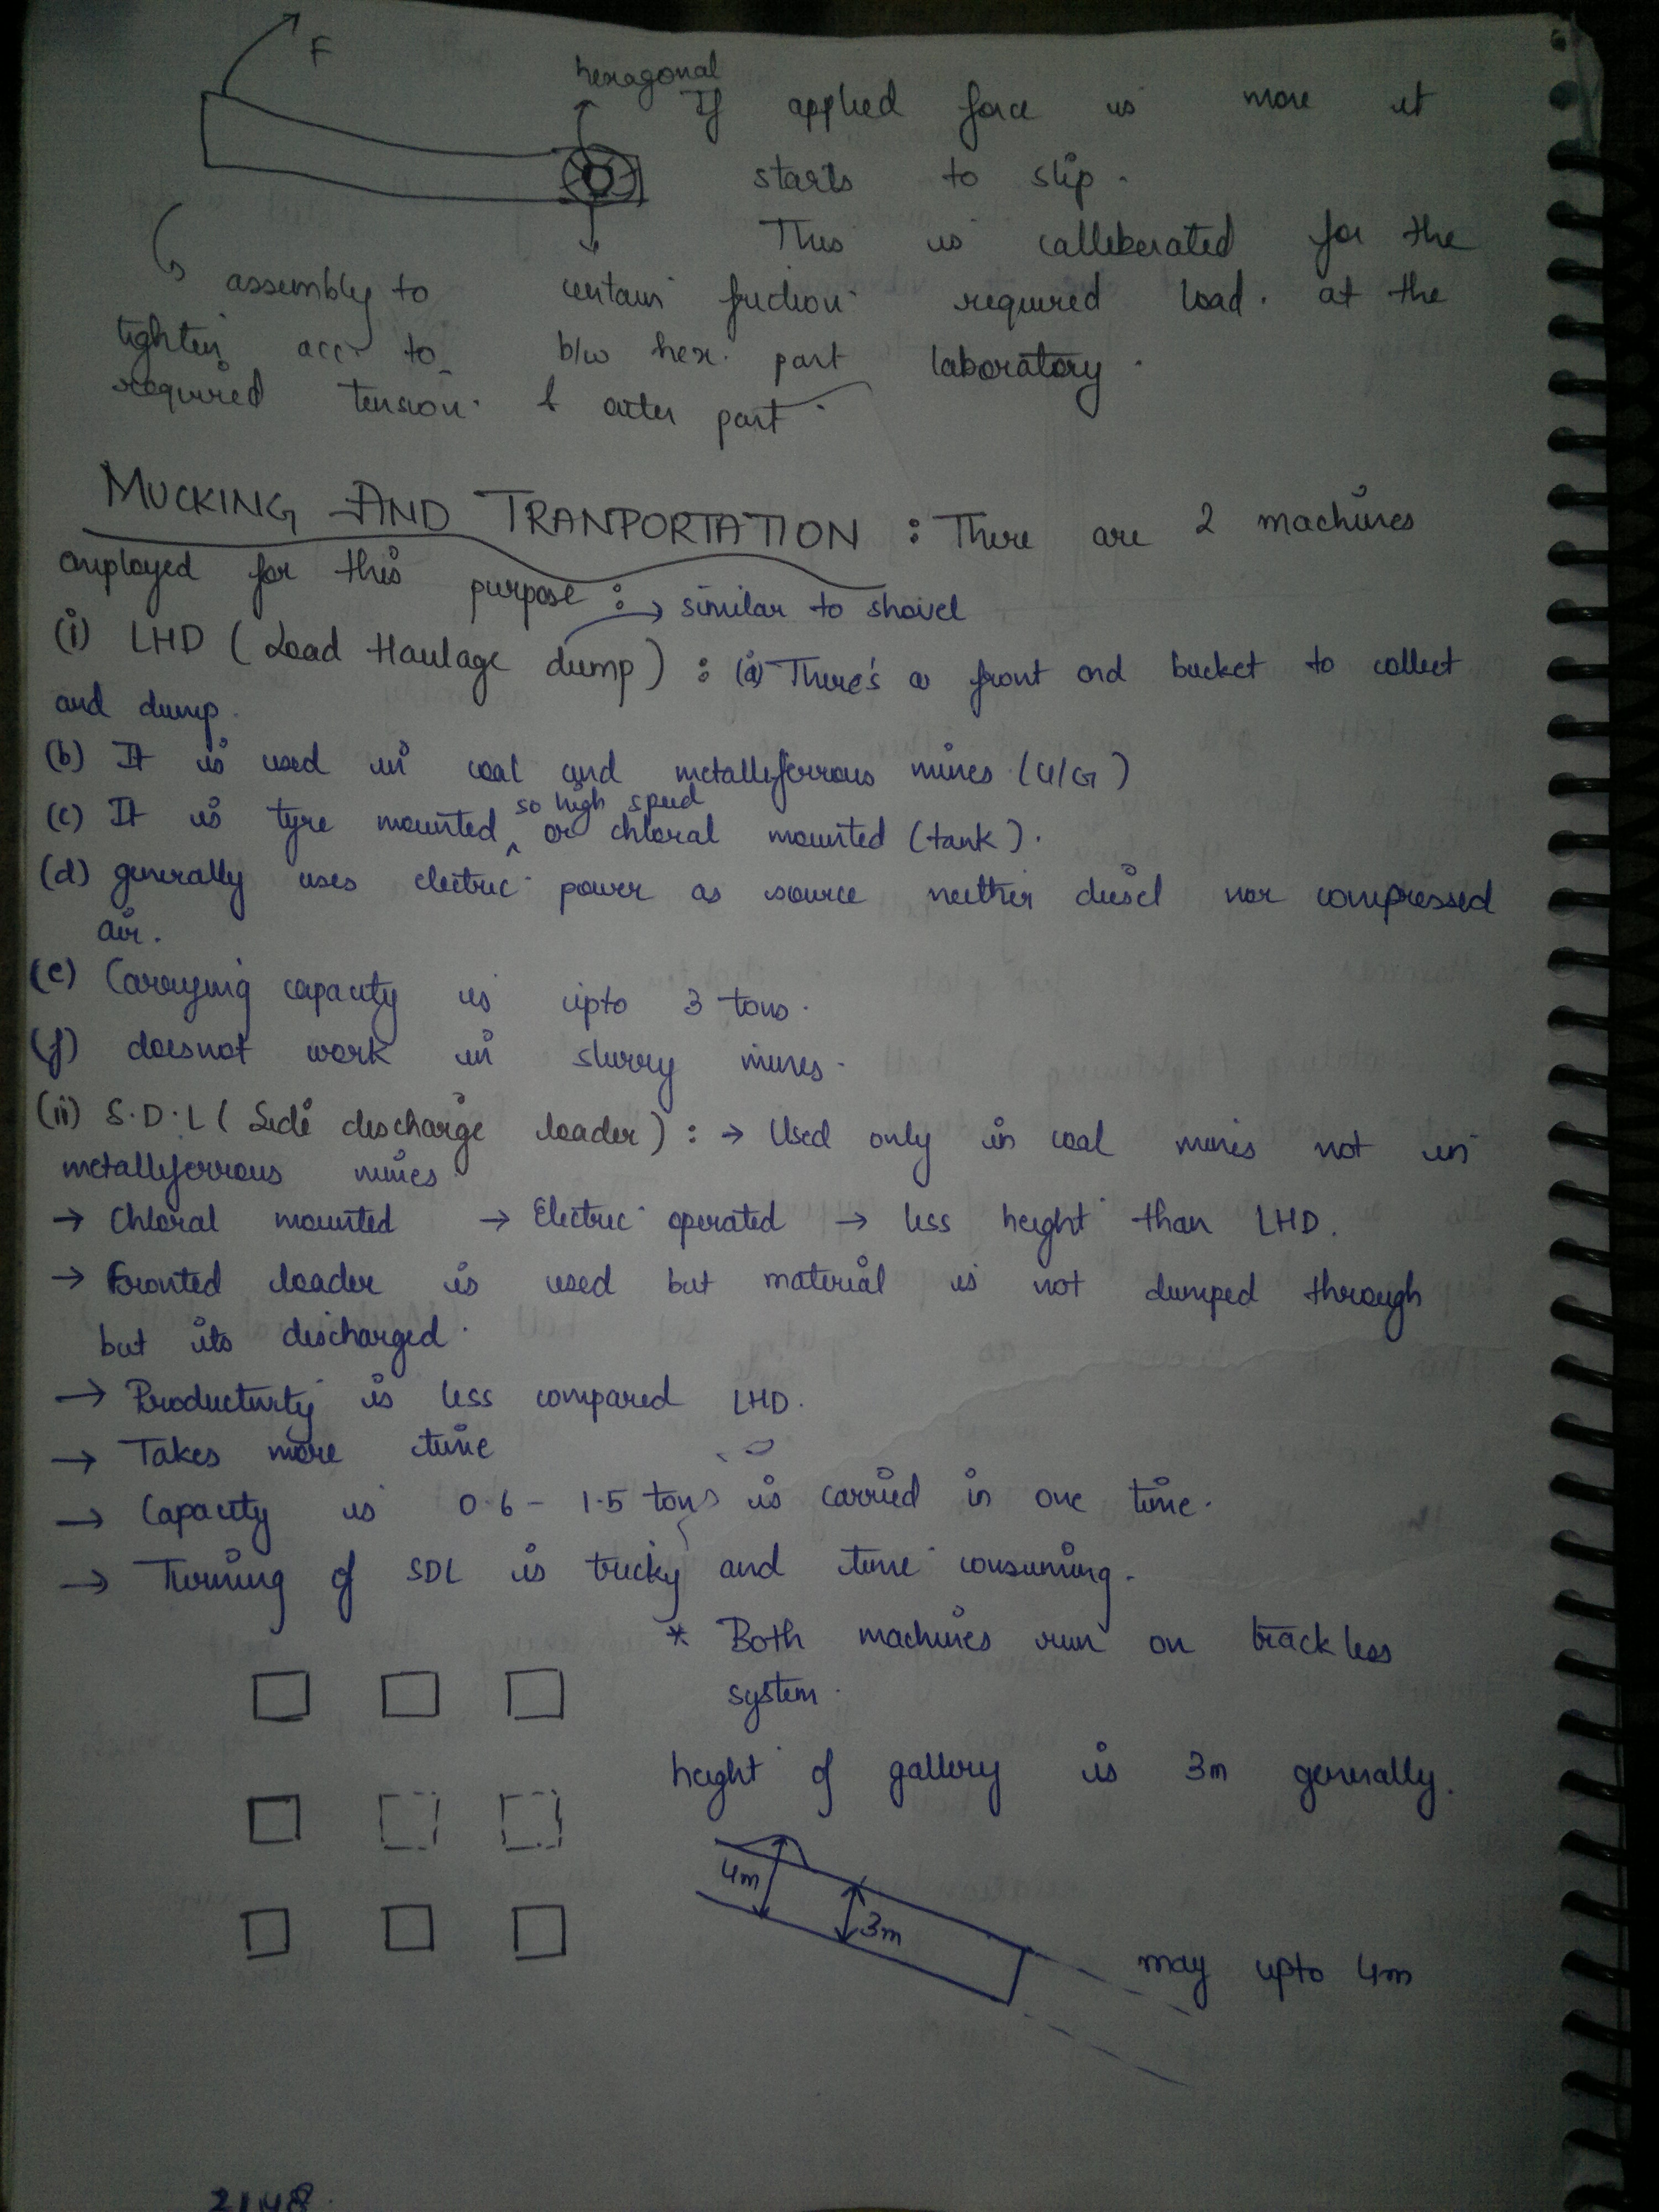 F
hexagonal
If applied force is more it
starts to slip.
This is calleberated for the
required load. at the
laboratory.
assembly to
tighten acc. to
required tension.
certain friction
b/w hex. part
& outer part
MUCKING AND TRANPORTATION : There are 2 machines
employed for this purpose :
→ similar to shovel
(i) LHD (Load Haulage dump) : (a) There's a front end bucket to collect
and dump.
(b) It is used in coal and metalliferrous mines (U/G)
so high speed
(c) It is tyre mounted ^ or chloral mounted (tank).
(d) generally uses electric power as source neither diesel nor compressed
air.
(e) Carrying capacity is upto 3 tons.
(f) doesnot work in slurry mines.
(ii) S.D.L (Side discharge loader) : → Used only in coal mines not in
metalliferrous mines
→ Chloral mounted → Electric operated → less height than LHD.
→ Fronted loader is used but material is not dumped through
but its discharged.
→ Productivity is less compared LHD.
→ Takes more time
→ Capacity is 0.6 - 1.5 tons is carried in one time.
→ Turning of SDL is tricky and time consuming.
* Both machines run on trackless
system.
height of gallery is 3m generally.
4m
3m
may upto 4m